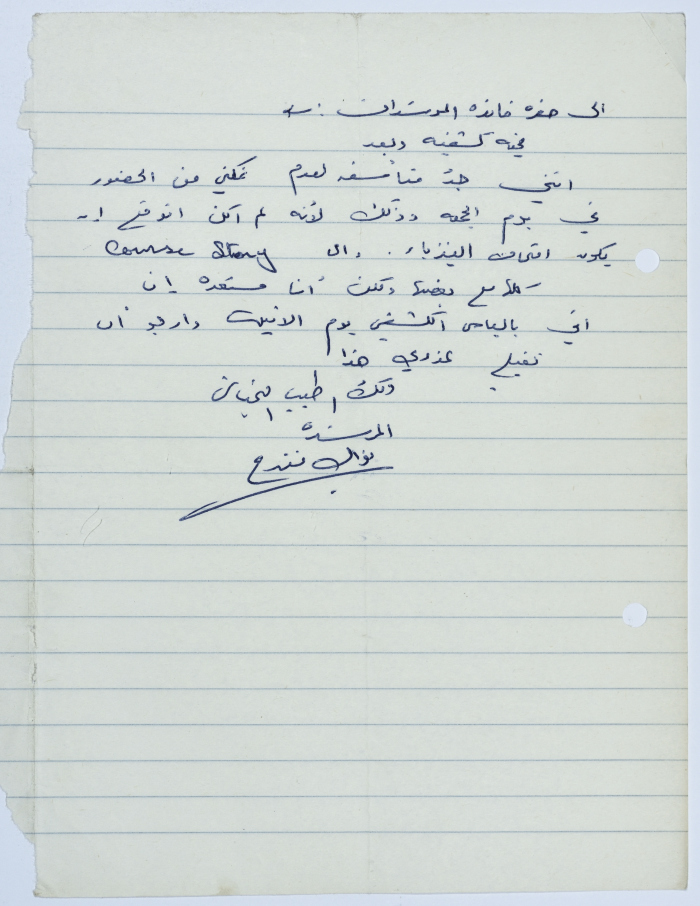 الى حضرة قائدة المرشدات :ـ
تحية كشفية وبعد
انني جدّ متأسفة لعدم تمكني من الحضور
في يوم الجمعه وذلك لأنه لم اكن اتوقع ان
يكون امتحان الفيزياء. وال Course Story
كلها مع بعضها ولكن أنا مستعدة ان
آتي باللباس الكشفي يوم الاثنين وارجو ان
تقبلي عذري هذا
ولك اطيب التحيات
المرشدة
نوال